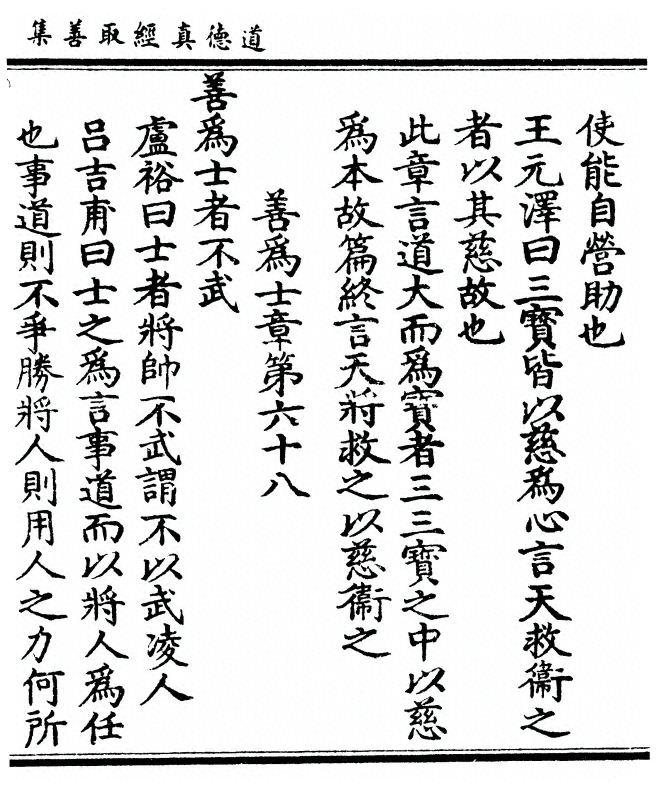 道德真經取善集
使能自營助也
王元澤曰三寶皆以慈爲心言天救衞之
者以其慈故也
此章言道大而爲寶者三三寶之中以慈
爲本故篇終言天將救之以慈衞之
善爲士章第六十八
善爲士者不武
盧裕曰士者將帥不武謂不以武凌人
吕吉甫曰士之爲言事道而以將人爲任
也事道則不爭勝將人則用人之力何所